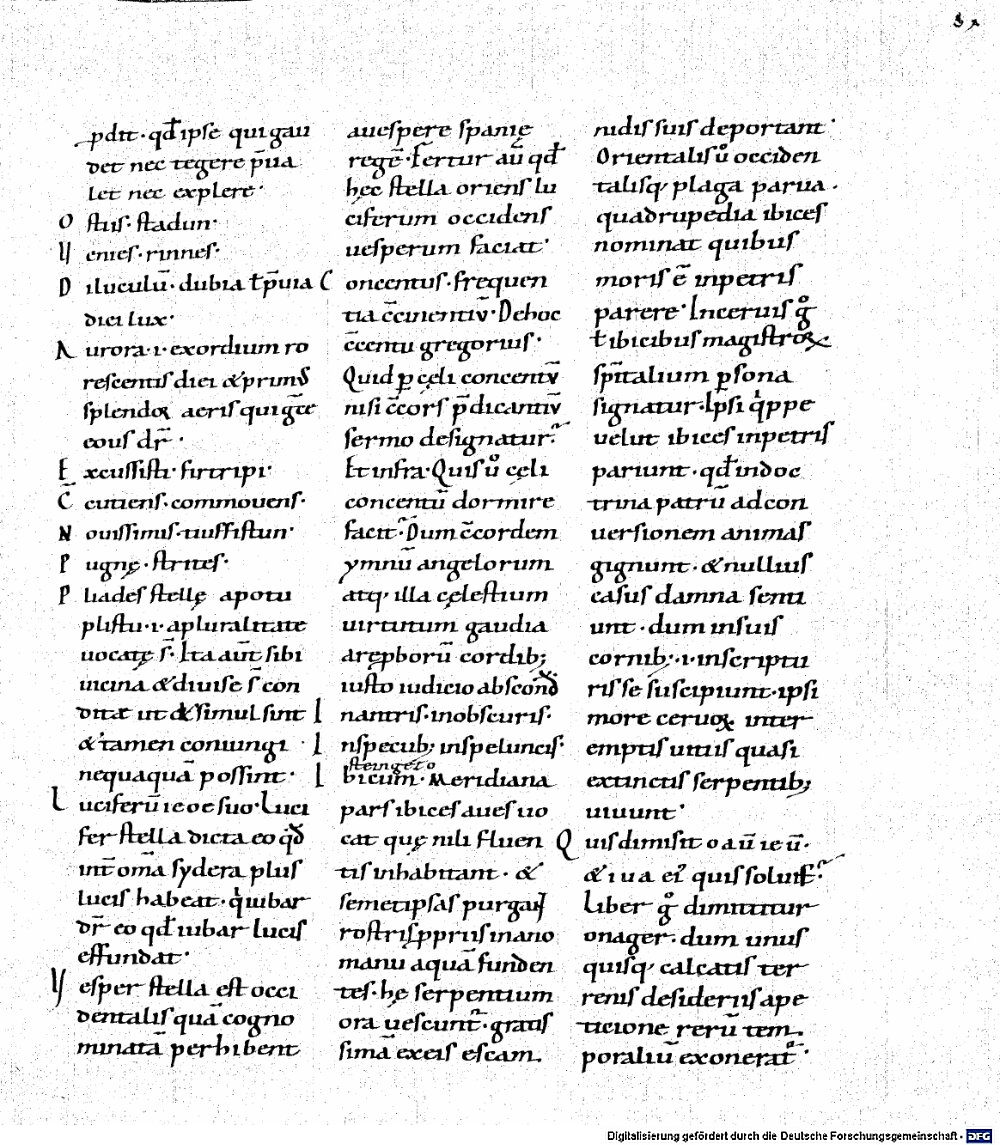 pdit · qđ ipse qui gau
det nec tegere p̄ua
let nec explere ·
O stiis · stadun ·
U enies · rinnes ·
D iluculū · dubia ł p̄uia
diei lux ·
A urora · i · exordium ro
rescentis diei & prim᷒
splendor aeris qui gr̄ce
eous dr̄ ·
E xcussisti · firtripi ·
C̄ cutiens · commouens ·
N ouissimis · iuffistun ·
P ugnę · strites ·
P liades stellę apotu
plistu · i · a pluralitate
uocatę s̄ · Ita aut̄ sibi
uicina & diuise s̄ con
ditat ut & simul sint
& tamen coniungi
nequaquā possint ·
L uciferū ieoe suo · Luci
fer stella dicta eo qđ
int̄ om̄a sydera plus
lucis habeat · q̇ iubar
dr̄ eo qđ iubar lucis
effundat ·
U esper stella est occi
dentalis quā cogno
minatā perhibent
a uespere spanię
regē · Fertur aū qđ
hęc stella oriens lu
ciferum occidens
uesperum faciat ·
C oncentus · frequen
tia c̄cinentiū · De hoc
c̄centu gregorius ·
Quid p cęli concentū
nisi c̄cors p̄dicantiū
sermo designatur ·
Et infra · Quis ů cęli
concentū dormire
faciť · Dum c̄cordem
ymnū angelorum
atq; illa cęlestium
uirtutum gaudia
a rępborū cordib;
iusto iudicio abscond
I nantris · in obscuris ·
I nspecub; in speluncis ·
steingeto
I bicum · Meridiana
pars ibices aues uo
cat quę nili fluen
tis inhabitant · &
semetipsas purgant
rostris ppriis in ano
manu aquā funden
tes · hę serpentium
ora uescunť · gratis
simā ex eis escam
nidis suis deportant ·
Orientalis ů occiden
talisq; plaga parua ·
quadrupedia ibices
nominat quibus
moris ē in petris
parere · In ceruis g̊
ł ibicibus magistroꝝ
sp̄italium psona
signatur · Ipsi q̇ppe
uelut ibices in petris
pariunt · qđ in doc
trina patrū ad con
uersionem animas
gignunt · & nullius
casus damna senti
unt · dum in suis
cornib; · i · in scriptu
ris se suscipiunt · ipsi
more ceruoꝝ inter
emptis uitiis quasi
extinctis serpentib;
uiuunt ·
Q uis dimisit o a ū i e ū ·
& i u a ei᷒ quis soluit ·
Liber g̊ dimittitur
onager · dum unus
quisq; calcatis ter
renis desideriis a pe
ticione rerū tem
poraliū exonerať ·
Digitalisierung gefördert durch die Deutsche Forschungsgemeinschaft - DFG